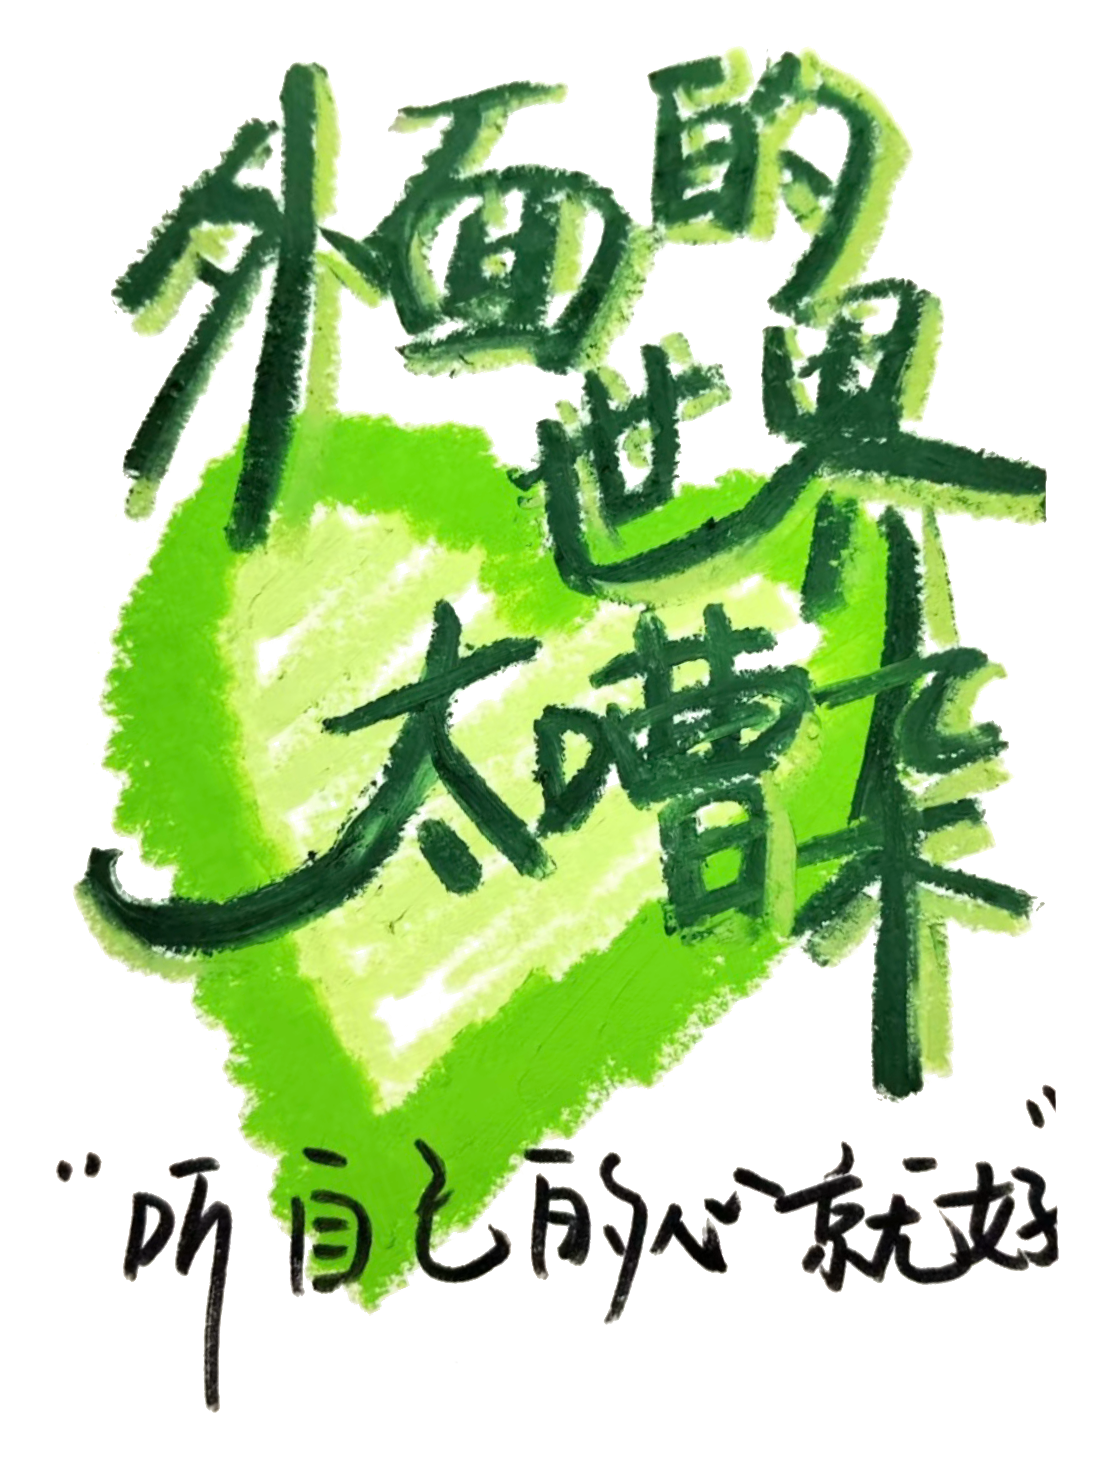 外面的
世界
太嘈杂
“听自己的心就好”